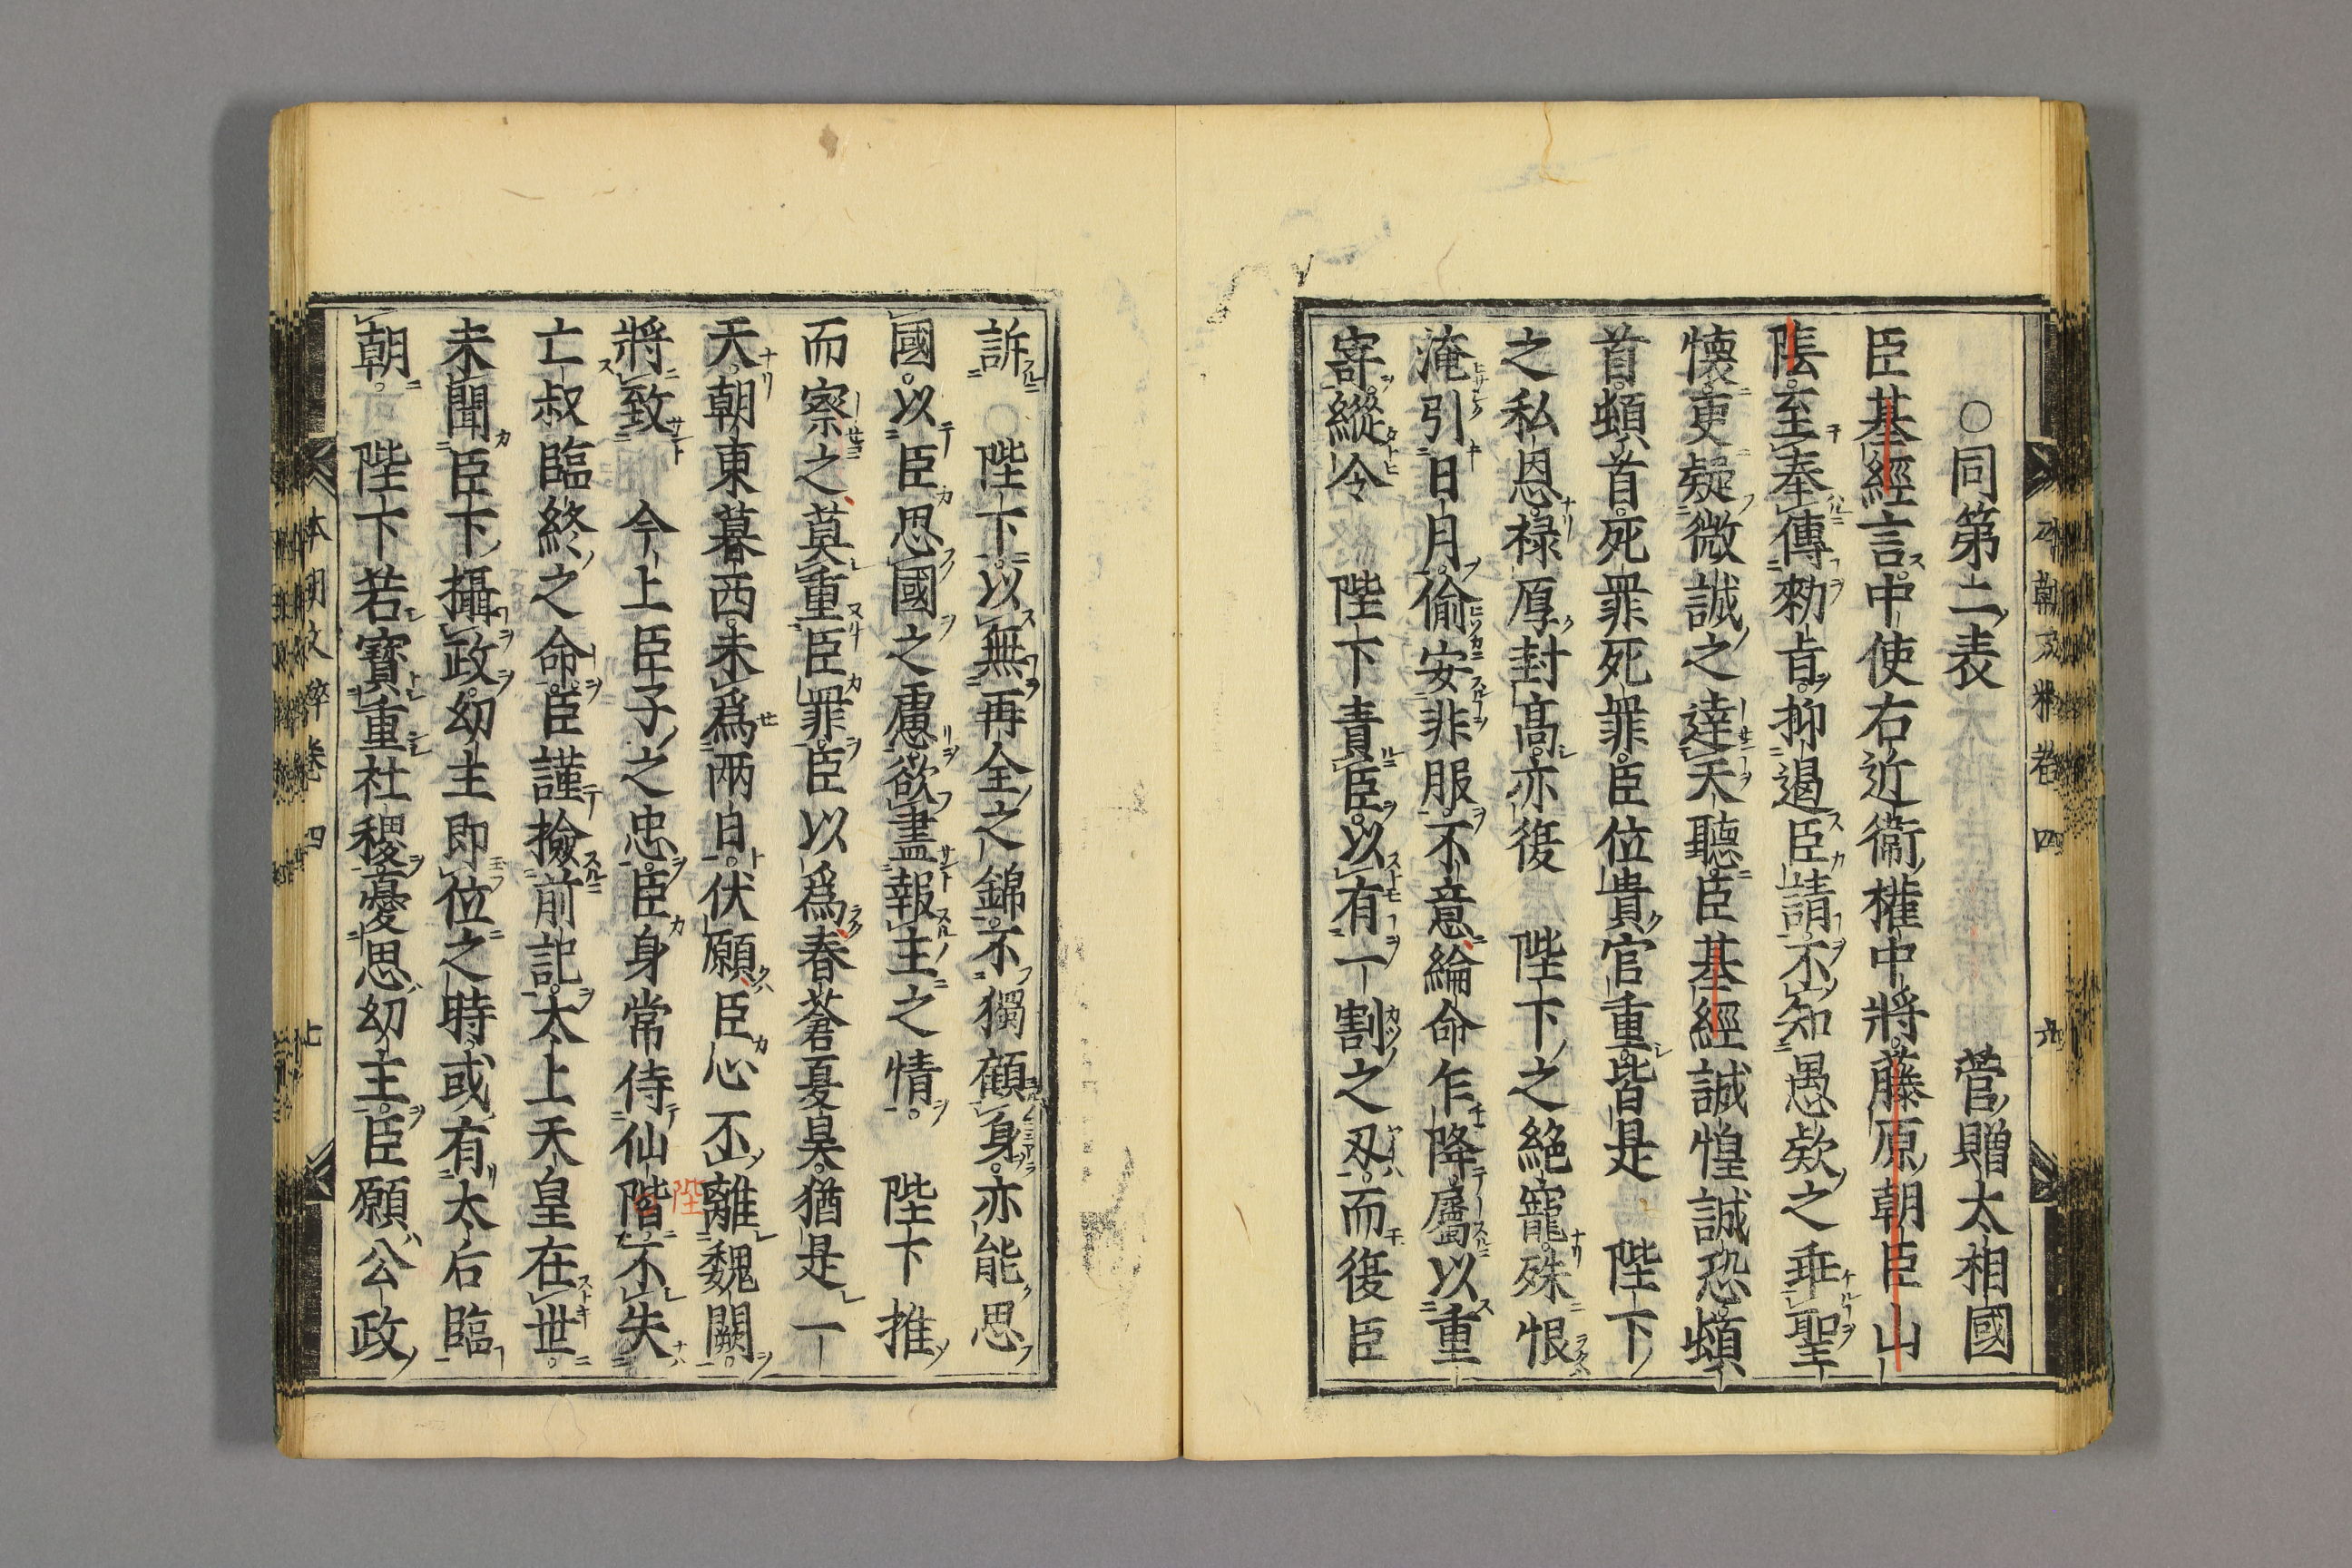 ○同第二表　菅贈太相國
臣基經言中使右近衞權中將藤原朝臣山
陰至奉傳勅旨抑遏臣請不知愚欵之乖聖
懷更疑微誠之達天聽臣基經誠惶誠恐頓
首頓首死罪死罪臣位貴官重皆是　陛下
之私恩祿厚封高亦復　陛下之絶寵殊恨
淹引日月偷安非服不意綸命乍降屬以重
寄縱令　陛下責臣以有一割之刄而復臣
訴　陛下以無再全之錦不獨顧身亦能思
國以臣思國之慮欲盡報主之情　陛下推
而察之莫重臣罪臣以爲春蒼夏昊猶是一
天朝東暮西未爲兩日伏願臣心丕離魏闕
將致　今上臣子之忠臣身常侍仙階不失
陛
亡叔臨終之命臣謹撿前記太上天皇在世
未聞臣下攝政幼主即位之時或有太后臨
朝　陛下若寶重社稷憂思幼主臣願公政
本朝文粹卷四　七